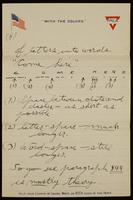 "WITH THE COLORS"
(4)
of letters into words
"Come here"
C O M E H E R E
(1) (2) (3)
(1) Space between dots and
dashes as short as
possible
(2) letter-space - much
longer.
(3) word-space - still
longer.
So you see paragraph
is mostly theory.